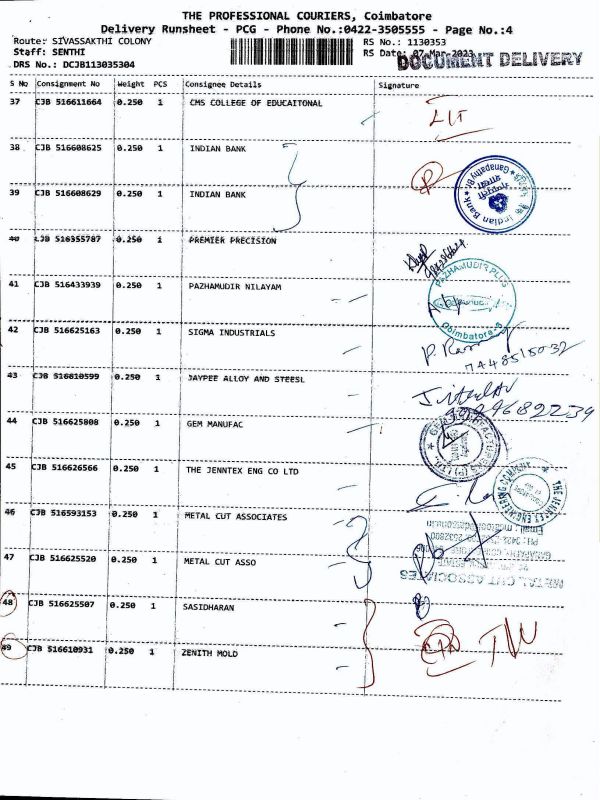 THE PROFESSIONAL COURIERS, Coimbatore
Delivery Runsheet - PCG - Phone No.:0422-3505555 - Page No.:4
Route: SIVASSAKTHI COLONY
RS No.: 1130353
Staff: SENTHI
RS Date: 07-Mar-2023
DOCUMENT DELIVERY
DRS No.: DCJB113035304
S No Consignment No Weight PCS Consignee Details Signature
37 CJB 516611664 0.250 1 CMS COLLEGE OF EDUCAITONAL
38 CJB 516608625 0.250 1 INDIAN BANK
39 CJB 516608629 0.250 1 INDIAN BANK
Indian Bank
40 CJB 516355787 0.250 1 PREMIER PRECISION
41 CJB 516433939 0.250 1 PAZHAMUDIR NILAYAM
PAZHAMUDIR PLUS
Coimbatore-6
42 CJB 516625163 0.250 1 SIGMA INDUSTRIALS
43 CJB 516610599 0.250 1 JAYPEE ALLOY AND STEESL
44 CJB 516625808 0.250 1 GEM MANUFAC
45 CJB 516626566 0.250 1 THE JENNTEX ENG CO LTD
46 CJB 516593153 0.250 1 METAL CUT ASSOCIATES
47 CJB 516625520 0.250 1 METAL CUT ASSO
METAL CUT ASSOCIATES
48 CJB 516625507 0.250 1 SASIDHARAN
49 CJB 516610931 0.250 1 ZENITH MOLD